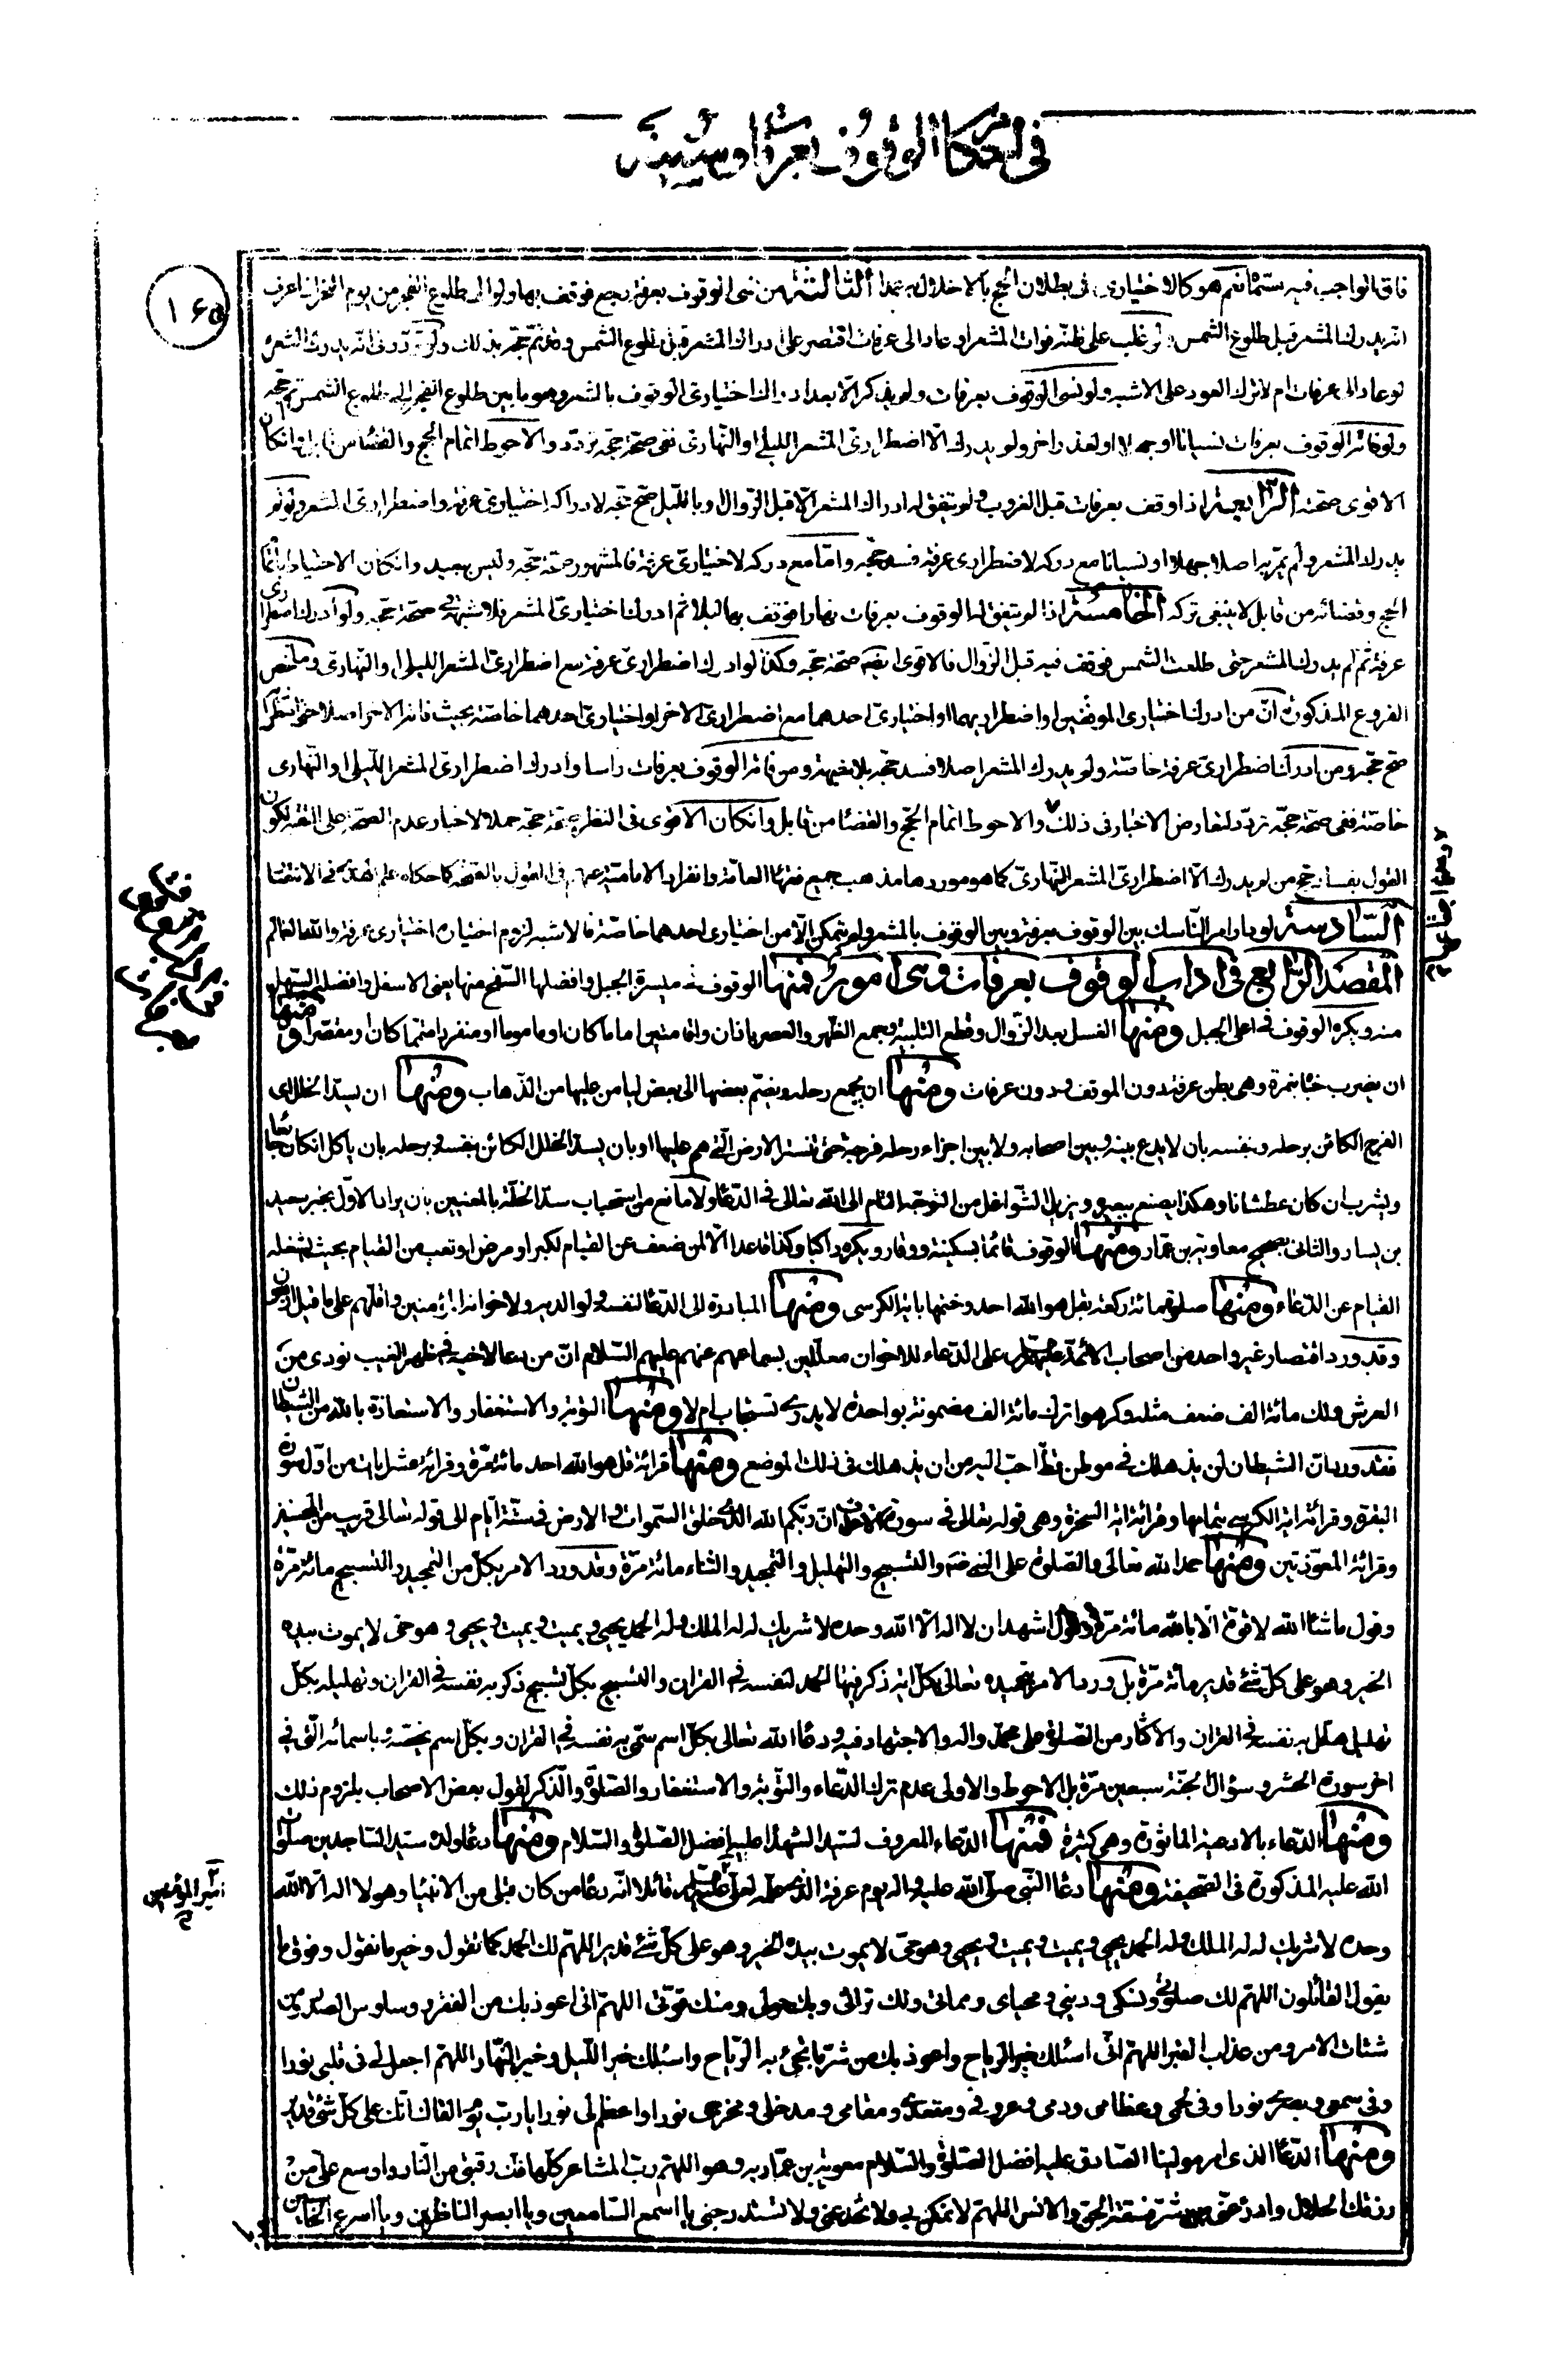 في احكام الوقوف بعرفات وسننه
۱۶۵
فاق الواجب فيه ستمائتم هو كالاختيارى فى بطلان الحج بالاخلال به عمدا الثالثة من نسى الوقوف بعرفة رجع فوقف بها ولو الى طلوع الفجر من يوم النحر اذا عرف
انه يدرك المشعر قبل طلوع الشمس ولو غلب على ظنه فوات المشعر لو عاد الى عرفات اقتصر على ادراك المشعر قبل طلوع الشمس وقد تم حجه بذلك ولو تردد فى انه يدرك المشعر
لو عاد الى عرفات ام لا ترك العود على الاشبه ولو نسى الوقوف بعرفات ولم يذكر الا بعد ادراك اختيارى الوقوف بالمشعر وهو ما بين طلوع الفجر الى طلوع الشمس تم حجه
ولو فاته الوقوف بعرفات نسيانا او جهلا او لعذر اخر ولم يدرك الا اضطرارى المشعر الليلى او النهارى ففى صحة حجه تردد والاحوط اتمام الحج والقضاء من قابل وان كان
الاقوى صحته الرابعة اذا وقف بعرفات قبل الغروب ولم يتفق له ادراك المشعر الا قبل الزوال او بالليل صح حجه لادراكه اختيارى عرفة واضطرارى المشعر ولو لم
يدرك المشعر ولم يمر به اصلا جهلا او نسيانا مع دركه لاضطرارى عرفة فسد حجه واما مع دركه لاختيارى عرفة فالمشهور صحة حجه وليس ببعيد وان كان الاحتياط باتمام
الحج وقضائه من قابل لا ينبغى تركه الخامسة اذا لم يتفق له الوقوف بعرفات نهارا فوقف بها ليلا ثم ادرك اختيارى المشعر فلا شبهة فى صحة حجه ولو ادرك اضطرارى
عرفة ثم لم يدرك المشعر حتى طلعت الشمس فوقف فيه قبل الزوال فالاقوى ايضا صحة حجه وكذا لو ادرك اضطرارى عرفة مع اضطرارى المشعر الليلى او النهارى وملخص
الفروع المذكورة ان من ادرك اختيارى الموقفين او اضطراريهما او اختيارى احدهما مع اضطرارى الاخر او اختيارى احدهما خاصة بحيث فاته الاخر اصلا حتى اضطراريا
صح حجه ومن ادرك اضطرارى عرفة خاصة ولم يدرك المشعر اصلا فسد حجه بلا شبهة ومن فاته الوقوف بعرفات راسا وادرك اضطرارى المشعر الليلى او النهارى
خاصة ففى صحة حجه تردد لتعارض الاخبار فى ذلك والاحوط اتمام الحج والقضاء من قابل وان كان الاقوى فى النظر صحة حجه حملا لاخبار عدم الصحة على التقية لكون
القول بفساد حج من لم يدرك الا اضطرارى المشعر النهارى كما هو موردها مذهب جميع فقهاء العامة وانفراد الامامية عنهم فى القول بالصحة كما حكاه علم الهدى فى الانتصار
السادسة لو دار امر الناسك بين الوقوف بعرفة وبين الوقوف بالمشعر ولم يتمكن الا من اختيارى احدهما خاصة فالاشبه لزوم اختياره اختيارى عرفة والله العالم
المقصد الرابع فى اداب الوقوف بعرفات وهى امور فمنها الوقوف فى ميسرة الجبل وافضلها السفح منها يعنى الاسفل وافضله السهل
منه ويكره الوقوف فى اعلى الجبل ومنها الغسل بعد الزوال وقطع التلبية وجمع الظهر والعصر باذان واقامتين اماما كان او ماموما او منفردا متما كان او مقصرا ومنها
ان يضرب خباه بنمرة وهى بطن عرنة دون الموقف ودون عرفات ومنها ان يجمع رحله ويضم بعضها الى بعض ليامن عليها من الذهاب ومنها ان يسد الخلل اى
الفرج الكائن برحله وبنفسه بان لا يدع بينه وبين اصحابه ولا بين اجزاء رحله فرجة حتى تستر الارض التى هم عليها او بان يسد الخلل الكائن بنفسه وبرحله بان ياكل ان كان جائعا
ويشرب ان كان عطشانا وهكذا يصنع ببعيره ويزيل الشواغل من التوجه التام الى الله تعالى فى الدعاء ولا مانع من استحباب سد الخلة بالمعنيين بان يراد الاول بخبر سعيد
بن يسار والثانى بصحيح معاوية بن عمار ومنها الوقوف قائما بسكينة ووقار ويكره راكبا وكذا قاعدا الا لمن ضعف عن القيام لكبر او مرض او تعب من القيام بحيث يشغله
القيام عن الدعاء ومنها صلوة مائة ركعة بقل هو الله احد وختمها باية الكرسى ومنها المبادرة الى الدعاء لنفسه ولوالديه ولاخوانه المؤمنين واقلهم على ما قيل اربعون
وقد ورد اقتصار غير واحد من اصحاب الائمة عليهم السلام على الدعاء للاخوان معللين بسماعهم عنهم عليهم السلام ان من دعا لاخيه فى ظهر الغيب نودى من
العرش ولك مائة الف ضعف مثله وكرهوا ترك مائة الف مضمونة بواحدة لا يدرى تستجاب ام لا ومنها التوبة والاستغفار والاستعاذة بالله من الشيطان
فقد ورد ان الشيطان لن يذهلك فى موطن قط احب اليه من ان يذهلك فى ذلك الموضع ومنها قرائة قل هو الله احد مائة مرة وقرائة عشر ايات من اول سورة
البقرة وقرائة اية الكرسى بتمامها وقرائة اية السخرة وهى قوله تعالى فى سورة الاعراف ان ربكم الله الذى خلق السموات والارض فى ستة ايام الى قوله تعالى قريب من المحسنين
وقرائة المعوذتين ومنها حمد الله تعالى والصلوة على النبى ص والتسبيح والتهليل والتمجيد والثناء مائة مرة وقد ورد الامر بكل من التحميد والتسبيح مائة مرة
وقول ما شاء الله لا قوة الا بالله مائة مرة وقول اشهد ان لا اله الا الله وحده لا شريك له له الملك وله الحمد يحيى ويميت ويميت ويحيى وهو حى لا يموت بيده
الخير وهو على كل شئ قدير مائة مرة بل ورد الامر بتحميده تعالى بكل اية ذكر فيها الحمد لنفسه فى القران والتسبيح بكل تسبيح ذكر به نفسه فى القران وتهليله بكل
تهليل هلل به نفسه فى القران والاكثار من الصلوة على محمد واله والاجتهاد فيه ودعاء الله تعالى بكل اسم سمى به نفسه فى القران وبكل اسم يخصه وباسمائه التى فى
اخر سورة الحشر وسؤال الجنة سبعين مرة بل الاحوط والاولى عدم ترك الدعاء والتوبة والاستغفار والصلوة والذكر لقول بعض الاصحاب بلزوم ذلك
ومنها الدعاء بالادعية الماثورة وهى كثيرة فمنها الدعاء المعروف لسيد الشهداء عليه افضل الصلوة والسلام ومنها دعاء ولده سيد الساجدين صلوات
الله عليه المذكورة فى الصحيفة ومنها دعاء النبى صلى الله عليه واله يوم عرفة الذى علمه لعلى عليه السلام قائلا انه دعاء من كان قبلى من الانبياء وهو لا اله الا الله
وحده لا شريك له له الملك وله الحمد يحيى ويميت ويميت ويحيى وهو حى لا يموت بيده الخير وهو على كل شئ قدير اللهم لك الحمد كما تقول وخير ما نقول وفوق ما
يقول القائلون اللهم لك صلوتى ونسكى ودينى ومحياى ومماتى ولك تراثى وبك حولى ومنك قوتى اللهم انى اعوذ بك من الفقر ووساوس الصدر ومن
شتات الامر ومن عذاب القبر اللهم انى اسئلك خير الرياح واعوذ بك من شر ما تجئ به الرياح واسئلك خير الليل وخير النهار اللهم اجعل لى فى قلبى نورا
وفى سمعى وبصرى نورا وفى لحمى وعظامى ودمى وعروقى ومقعدى ومقامى ومدخلى ومخرجى نورا واعظم لى نورا يا رب يوم القاك انك على كل شئ قدير
ومنها الدعاء الذى امر مولينا الصادق عليه افضل الصلوة والسلام معوية بن عمار به وهو اللهم رب المشاعر كلها فك رقبتى من النار واوسع على من
رزقك الحلال وادرء عنى شر فسقة الجن والانس اللهم لا تمكر بى ولا تخدعنى ولا تستدرجنى يا اسمع السامعين ويا ابصر الناظرين ويا اسرع الحاسبين
امير المؤمنين